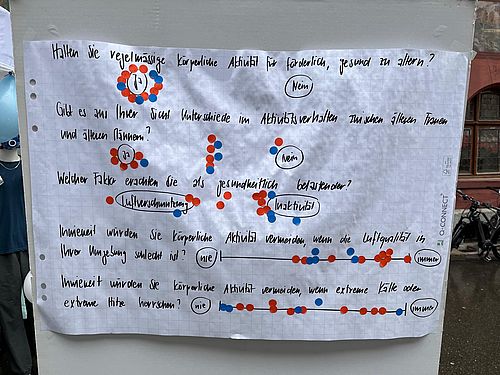 Halten Sie regelmässige körperliche Aktivität für förderlich, gesund zu altern?
Ja
Nein
Gibt es aus Ihrer Sicht Unterschiede im Aktivitätsverhalten zwischen älteren Frauen
und älteren Männern?
Ja
Nein
Welcher Faktor erachten Sie als gesundheitlich belastender?
Luftverschmutzung
Inaktivität
Inwieweit würden Sie körperliche Aktivität vermeiden, wenn die Luftqualität in
Ihrer Umgebung schlecht ist?
nie
immer
Inwieweit würden Sie körperliche Aktivität vermeiden, wenn extreme Kälte oder
extreme Hitze herrschen?
nie
immer
O-CONNECT